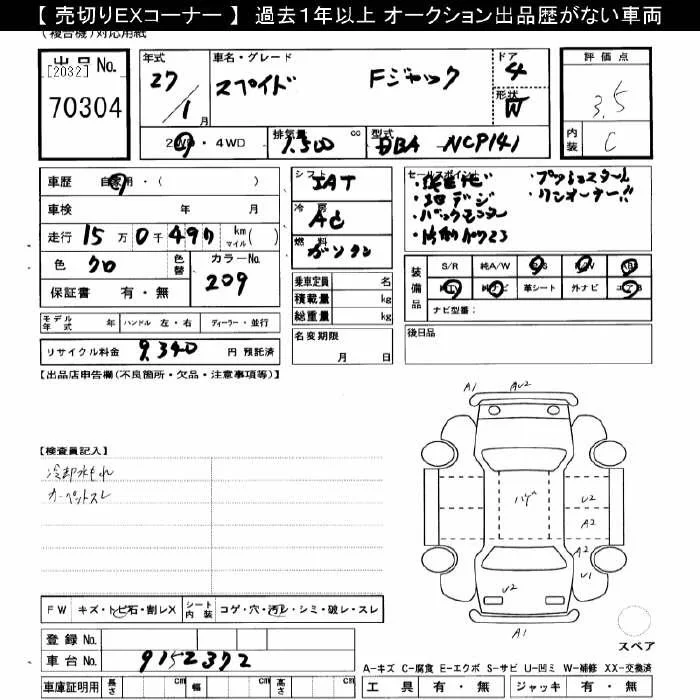 【 売切りEXコーナー 】 過去1年以上 オークション出品歴がない車両
(複合機)対応用紙
出品 No.
[2032]
70304
年式
27
1月
車名・グレード
スペイド Fジャック
ドア
4
形状
W
2WD・4WD
排気量
1,500 cc
型式
DBA NCP141
評価点
3.5
内装
C
車歴 自家用・( )
車検 年 月
走行 15万0千490 km マイル( )
色 クロ
色替
カラーNo.
209
保証書 有・無
シフト
IAT
冷房
AC
燃料
ガソリン
乗車定員 名
積載量 kg
総重量 kg
セールスポイント
・地デジ
・プッシュスタート
・ワンオーナー!!
・バックモニター
・片側パワスラ
装備品
S/R 純A/W P/S P/W ABS
純TV 純ナビ 革シート 外ナビ エアB
ナビ型番:
モデル年式 年 ハンドル 左・右 ディーラー・並行
リサイクル料金 9,340 円 預託済
名変期限
月 日
後日品
【出品店申告欄(不良箇所・欠品・注意事項等)】
【検査員記入】
冷却水もれ
カーペットスレ
A1
AU2
ハゲ
U2
A2
A2
U1
U2
A1
FW キズ・トビ石・割レX
シート内装 コゲ・穴・汚レ・シミ・破レ・スレ
登録 No.
車台 No. 9152372
車庫証明用 長さ cm 幅 cm 高さ cm
スペア
A-キズ C-腐食 E-エクボ S-サビ U-凹ミ W-補修 XX-交換済
工具 有・無 ジャッキ 有・無